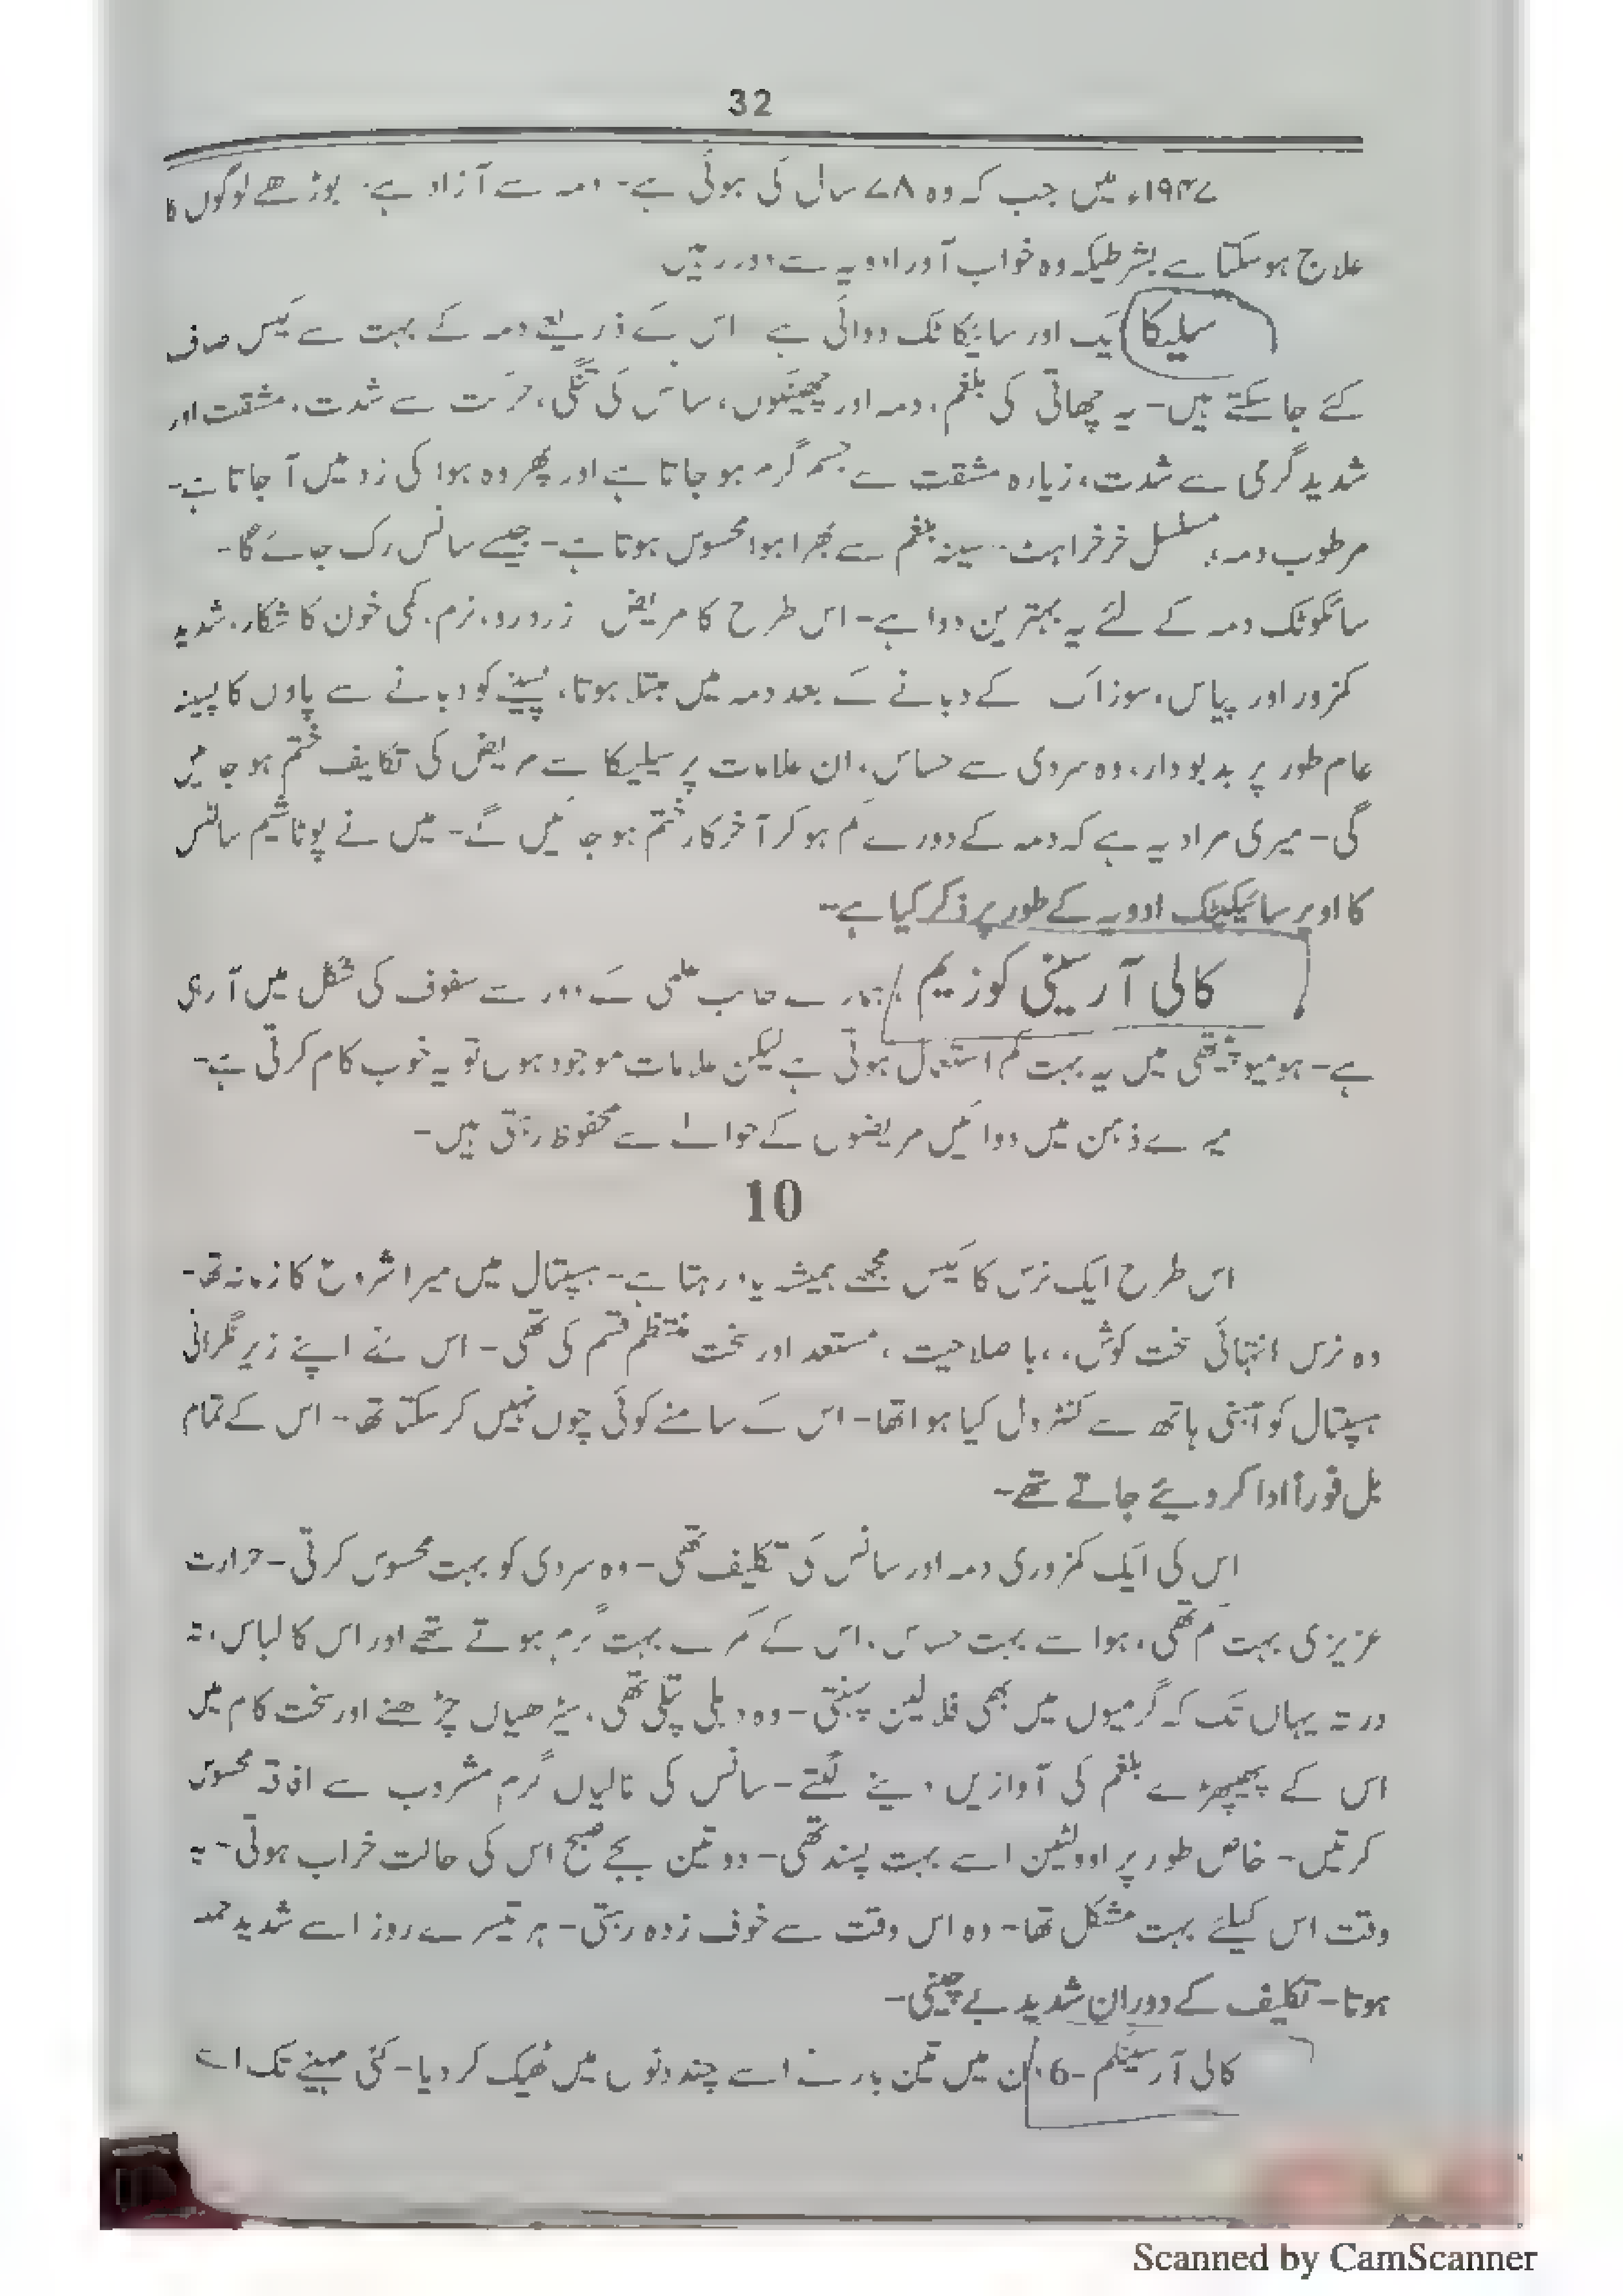 32
۱۹۴۷ء میں جب کہ وہ ۷۸ سال کی ہوئی ہے۔ دمہ سے آزاد ہے۔ بوڑھے لوگوں کا
علاج ہو سکتا ہے بشرطیکہ وہ خواب آور ادویہ سے دور رہیں
سلیکا ایک اور سائیکاٹک دوائی ہے اس کے ذریعے دمہ کے بہت سے کیس صاف
کئے جا سکتے ہیں۔ یہ چھاتی کی بلغم، دمہ اور چھینکوں، سانس کی تنگی، حرکت سے شدت، مشقت اور
شدید گرمی سے شدت، زیادہ مشقت سے جسم گرم ہو جاتا ہے اور پھر وہ ہوا کی زد میں آ جاتا ہے۔
مرطوب دمہ، مسلسل خرخراہٹ۔ سینہ بلغم سے بھرا ہوا محسوس ہوتا ہے۔ جیسے سانس رک جائے گا۔
سائکوٹک دمہ کے لئے یہ بہترین دوا ہے۔ اس طرح کا مریض زرد رو، نرم، کمی خون کا شکار، شدید
کمزور اور پیاس، سوزاک کے دبانے کے بعد دمہ میں مبتلا ہوتا، پسینے کو دبانے سے پاوں کا پسینہ
عام طور پر بدبودار، وہ سردی سے حساس، ان علامات پر سیلیکا سے مریض کی تکالیف ختم ہو جائیں
گی۔ میری مراد یہ ہے کہ دمہ کے دورے کم ہو کر آخر کار ختم ہو جائیں گے۔ میں نے پوٹاشیم سالٹس
کا اوپر سائیکیٹک ادویہ کے طور پر ذکر کیا ہے۔
کالی آرسینی کوزیم ہمارے طالب علمی کے دور سے سفوف کی شکل میں آ رہی
ہے۔ ہومیو پیتھی میں یہ بہت کم استعمال ہوتی ہے لیکن علامات موجود ہوں تو یہ خوب کام کرتی ہے۔
میرے ذہن میں دوائیں مریضوں کے حوالے سے محفوظ رہتی ہیں۔
10
اس طرح ایک نرس کا کیس مجھے ہمیشہ یاد رہتا ہے۔ ہسپتال میں میرا شروع کا زمانہ تھا۔
وہ نرس انتہائی سخت کوش، باصلاحیت، مستعد اور سخت منتظم قسم کی تھی۔ اس نے اپنے زیر نگرانی
ہسپتال کو آہنی ہاتھ سے کنٹرول کیا ہوا تھا۔ اس کے سامنے کوئی چوں نہیں کر سکتا تھا۔ اس کے تمام
بل فوراً ادا کر دیئے جاتے تھے۔
اس کی ایک کمزوری دمہ اور سانس کی تکلیف تھی۔ وہ سردی کو بہت محسوس کرتی۔ حرارت
عزیزی بہت کم تھی، ہوا سے بہت حساس، اس کے کمرے بہت گرم ہوتے تھے اور اس کا لباس، تہ
در تہ یہاں تک کہ گرمیوں میں بھی فلالین پہنتی۔ وہ دبلی پتلی تھی، سیڑھیاں چڑھنے اور سخت کام میں
اس کے پھیپھڑے بلغم کی آوازیں دینے لگتے۔ سانس کی نالیاں گرم مشروب سے افاقہ محسوس
کرتیں۔ خاص طور پر اوولٹین اسے بہت پسند تھی۔ دو تین بجے صبح اس کی حالت خراب ہوتی۔ یہ
وقت اس کیلئے بہت مشکل تھا۔ وہ اس وقت سے خوف زدہ رہتی۔ ہر تیسرے روز اسے شدید حملہ
ہوتا۔ تکلیف کے دوران شدید بے چینی۔
کالی آرسینکم -6 دن میں تین بار نے اسے چند دنوں میں ٹھیک کر دیا۔ کئی مہینے تک اسے
Scanned by CamScanner